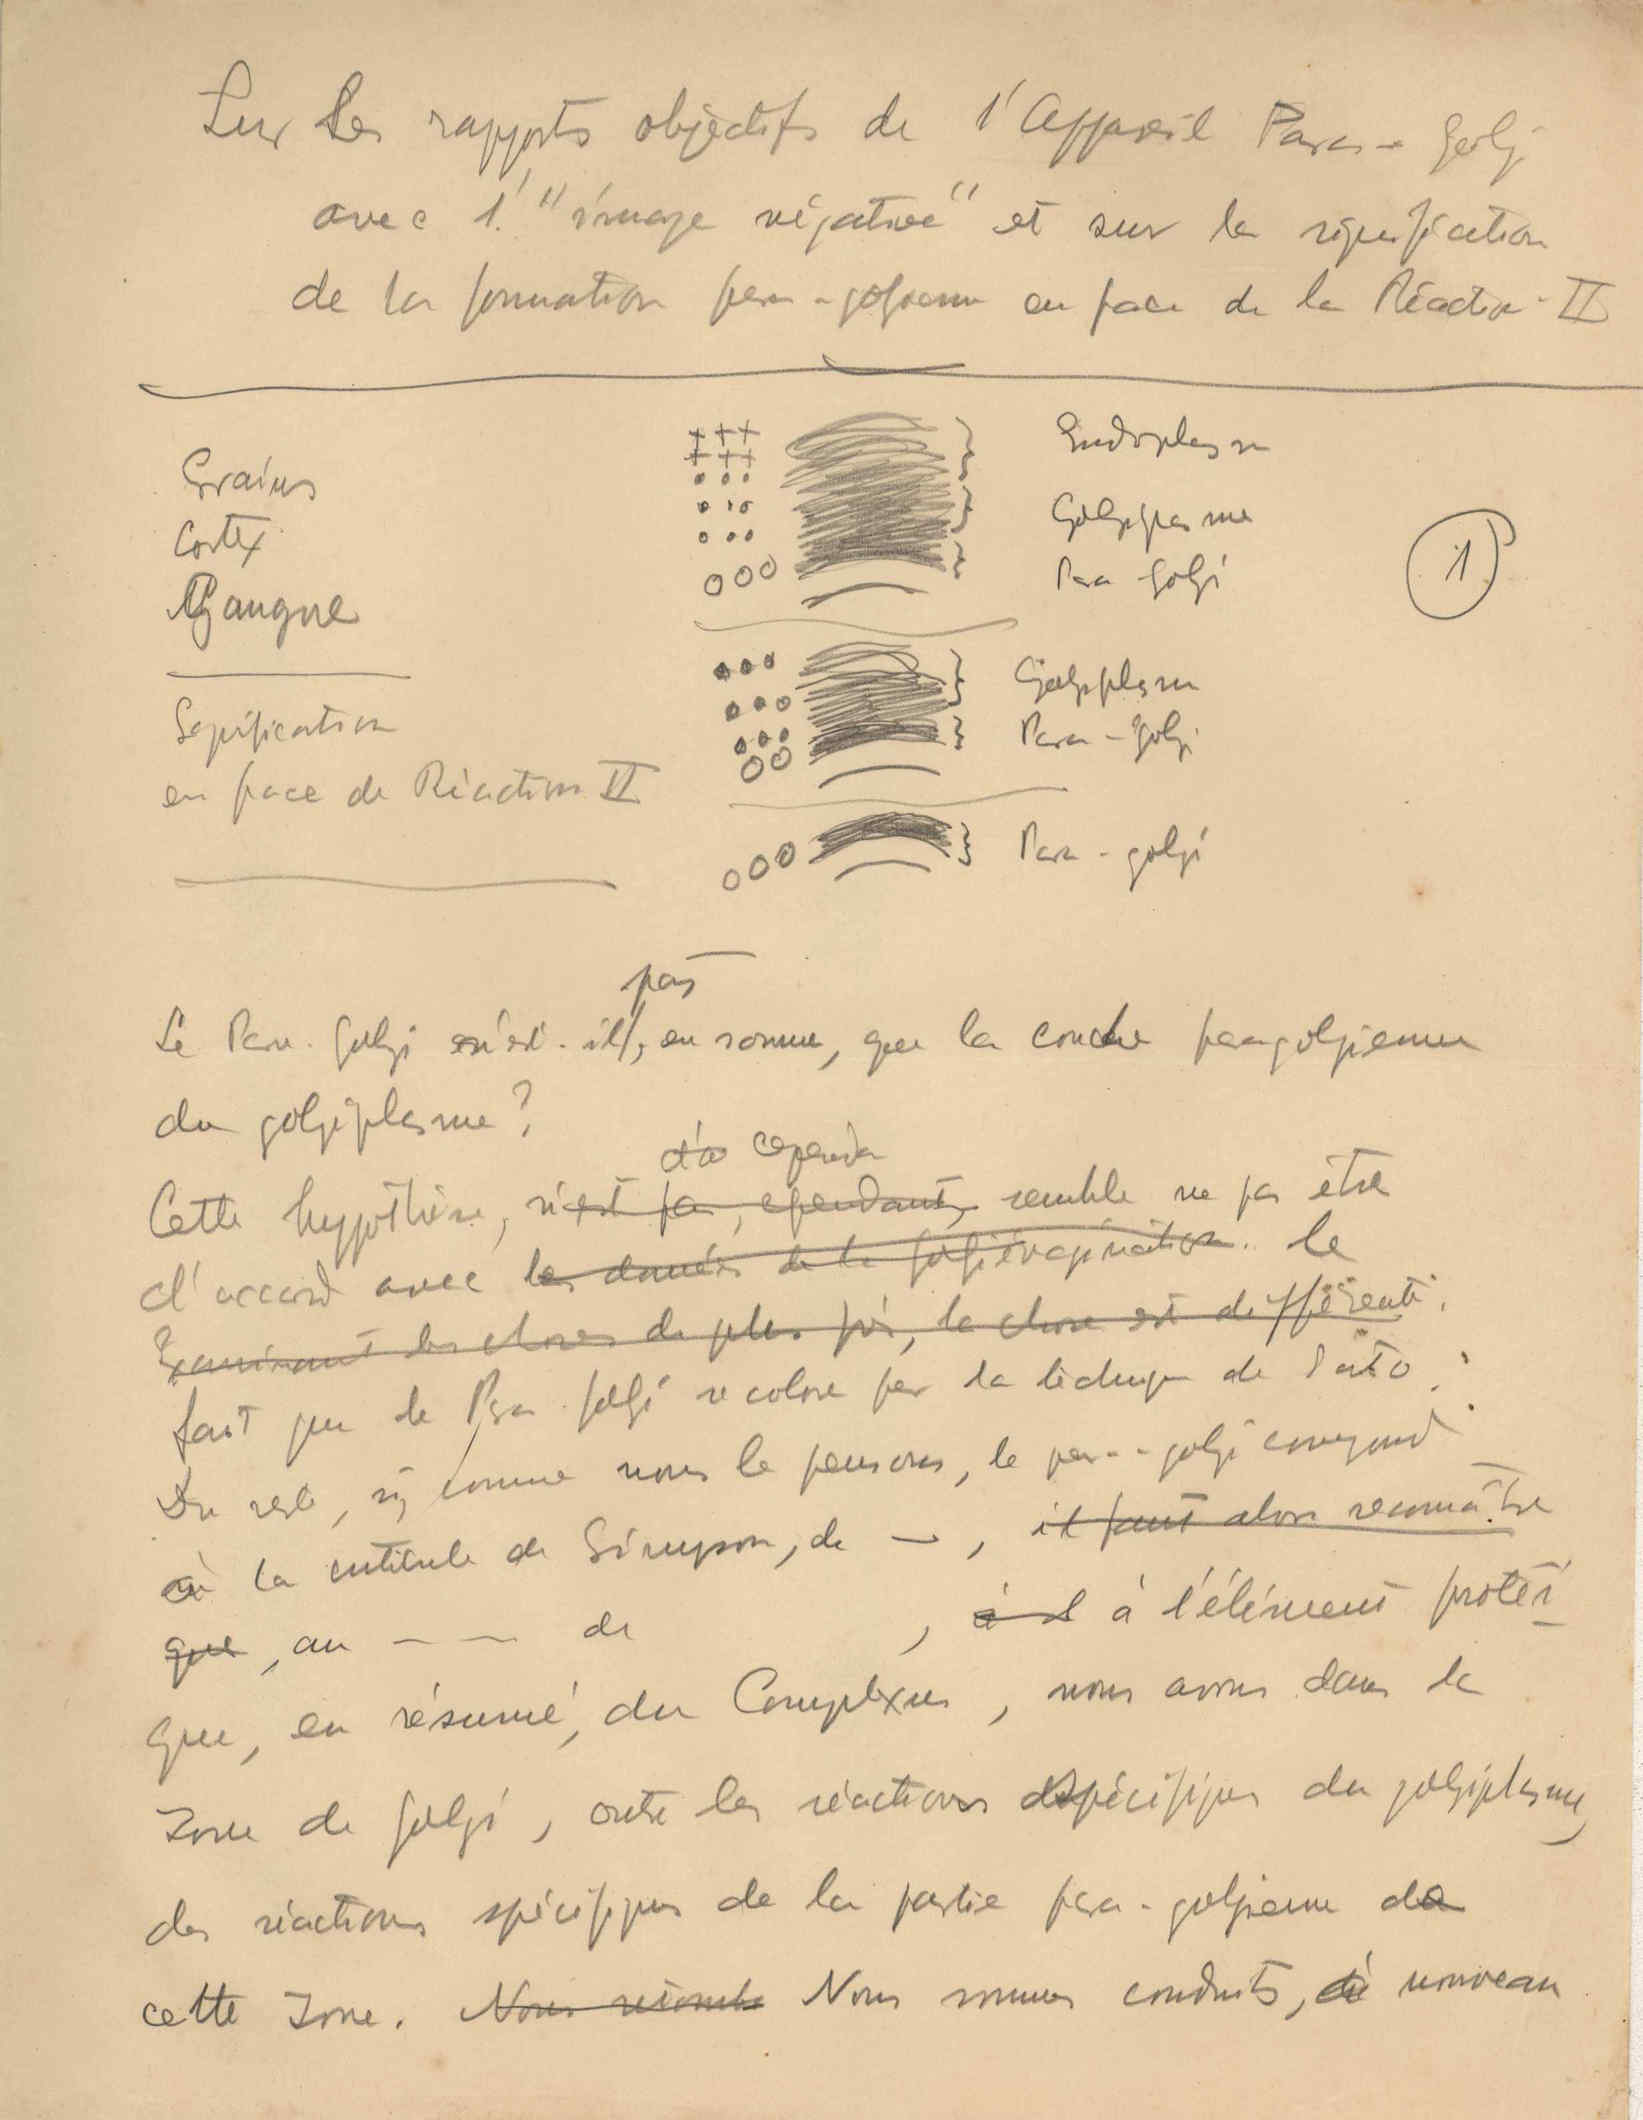 Sur Les rapports objectifs de l'Appareil Para-Golgi
avec l'"image négative" et sur la signification
de la formation para-golgienne en face de la Réaction II
Grains
Cortex
Gangue
Signification
en face de Réaction II
Endoplasme
Golgiplasme
Para Golgi
1
Golgiplasme
Para-Golgi
Para-golgi
pas
Le Para-Golgi n'est-il, en somme, que la couche paragolgienne
du golgiplasme?
cependant
Cette hypothèse, n'est pas, cependant, semble ne pas être
d'accord avec les données de la golgiévagination. le
Examinant les choses de plus près, la chose est différente.
fait que le Para Golgi se colore par la technique de
Du reste, si, comme nous le pensons, le para-golgi correspond
à la cuticule de Simpson, de —, il faut alors reconnaître
que, au — — de , à l'élément protéi-
que, en résumé, du Complexus, nous avons dans la
zone de Golgi, outre les réactions spécifiques du golgiplasme,
des réactions spécifiques de la partie para-golgienne de
cette zone. Nous Nous sommes conduits, de nouveau